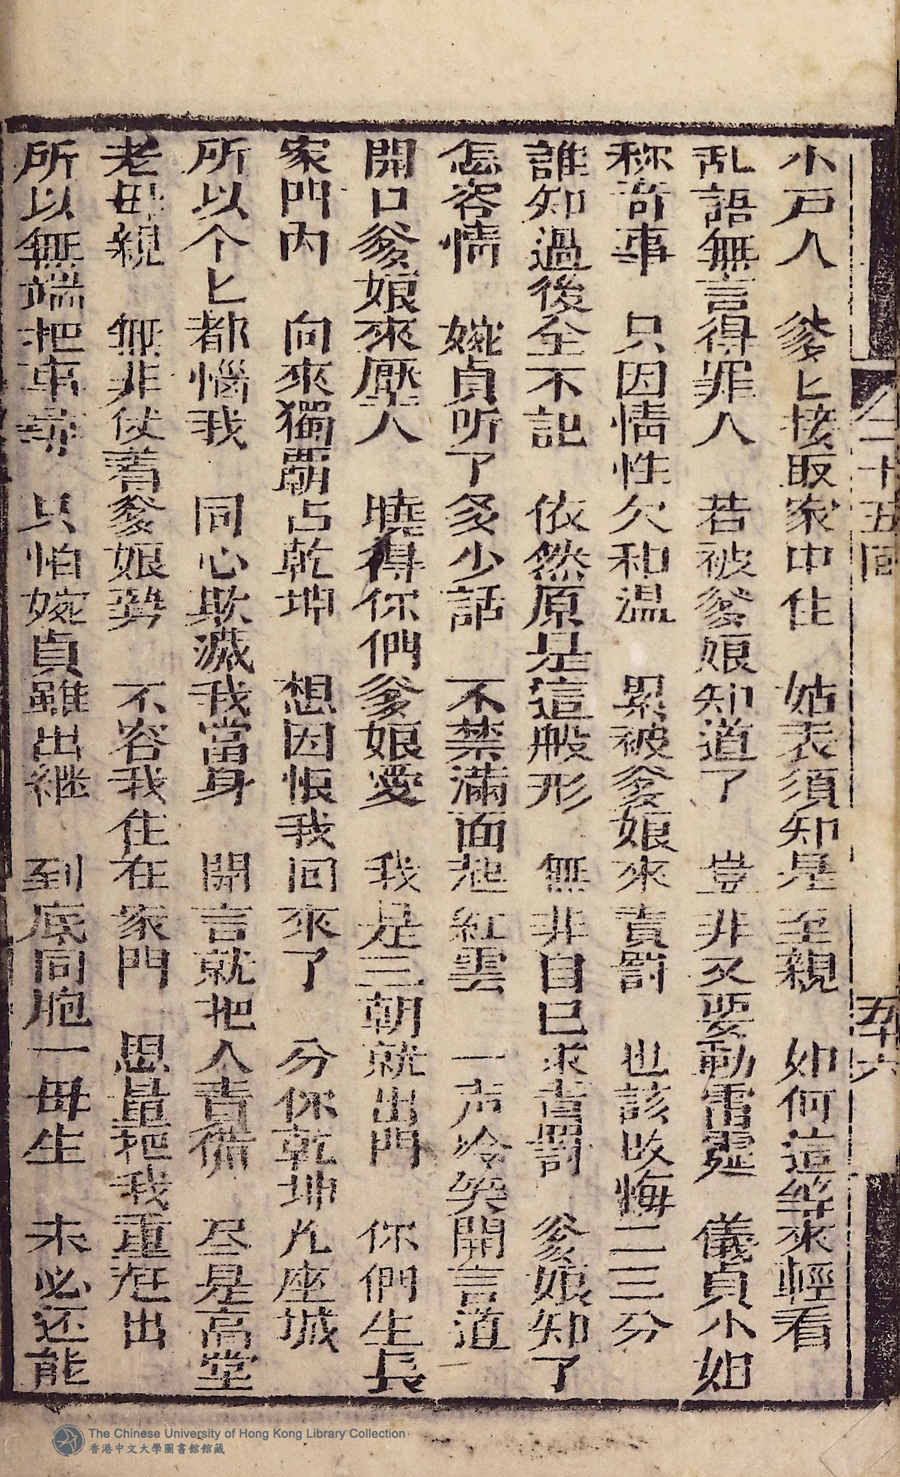 小戸人　爹匕接取家中住　姑表須知是至親　如何這等來輕看
乱語無言得罪人　若被爹娘知道了　豈非又要動雷霆　儀貞小姐
称奇事　只因情性欠和温　累被爹娘來責罰　也該改悔二三分
誰知過後全不記　依然原是這般形　無非自已求責罰　爹娘知了
怎容情　婉貞听了多少話　不禁滿面起紅雲　一声冷笑開言道
開口爹娘來壓人　曉得你們爹娘愛　我是三朝就出門　你們生長
家門内　向來獨覇占乾坤　想因恨我回來了　分你乾坤几座城
所以个匕都惱我　同心欺滅我當身　開言就把人責備　尽是高堂
老母親　無非仗着爹娘勢　不容我住在家門　思量把我重赶出
所以無端把事尋　只怕婉貞雖出継　到底同胞一母生　未必还能
二十五囘
五十六
The Chinese University of Hong Kong Library Collection
香港中文大學圖書館館藏